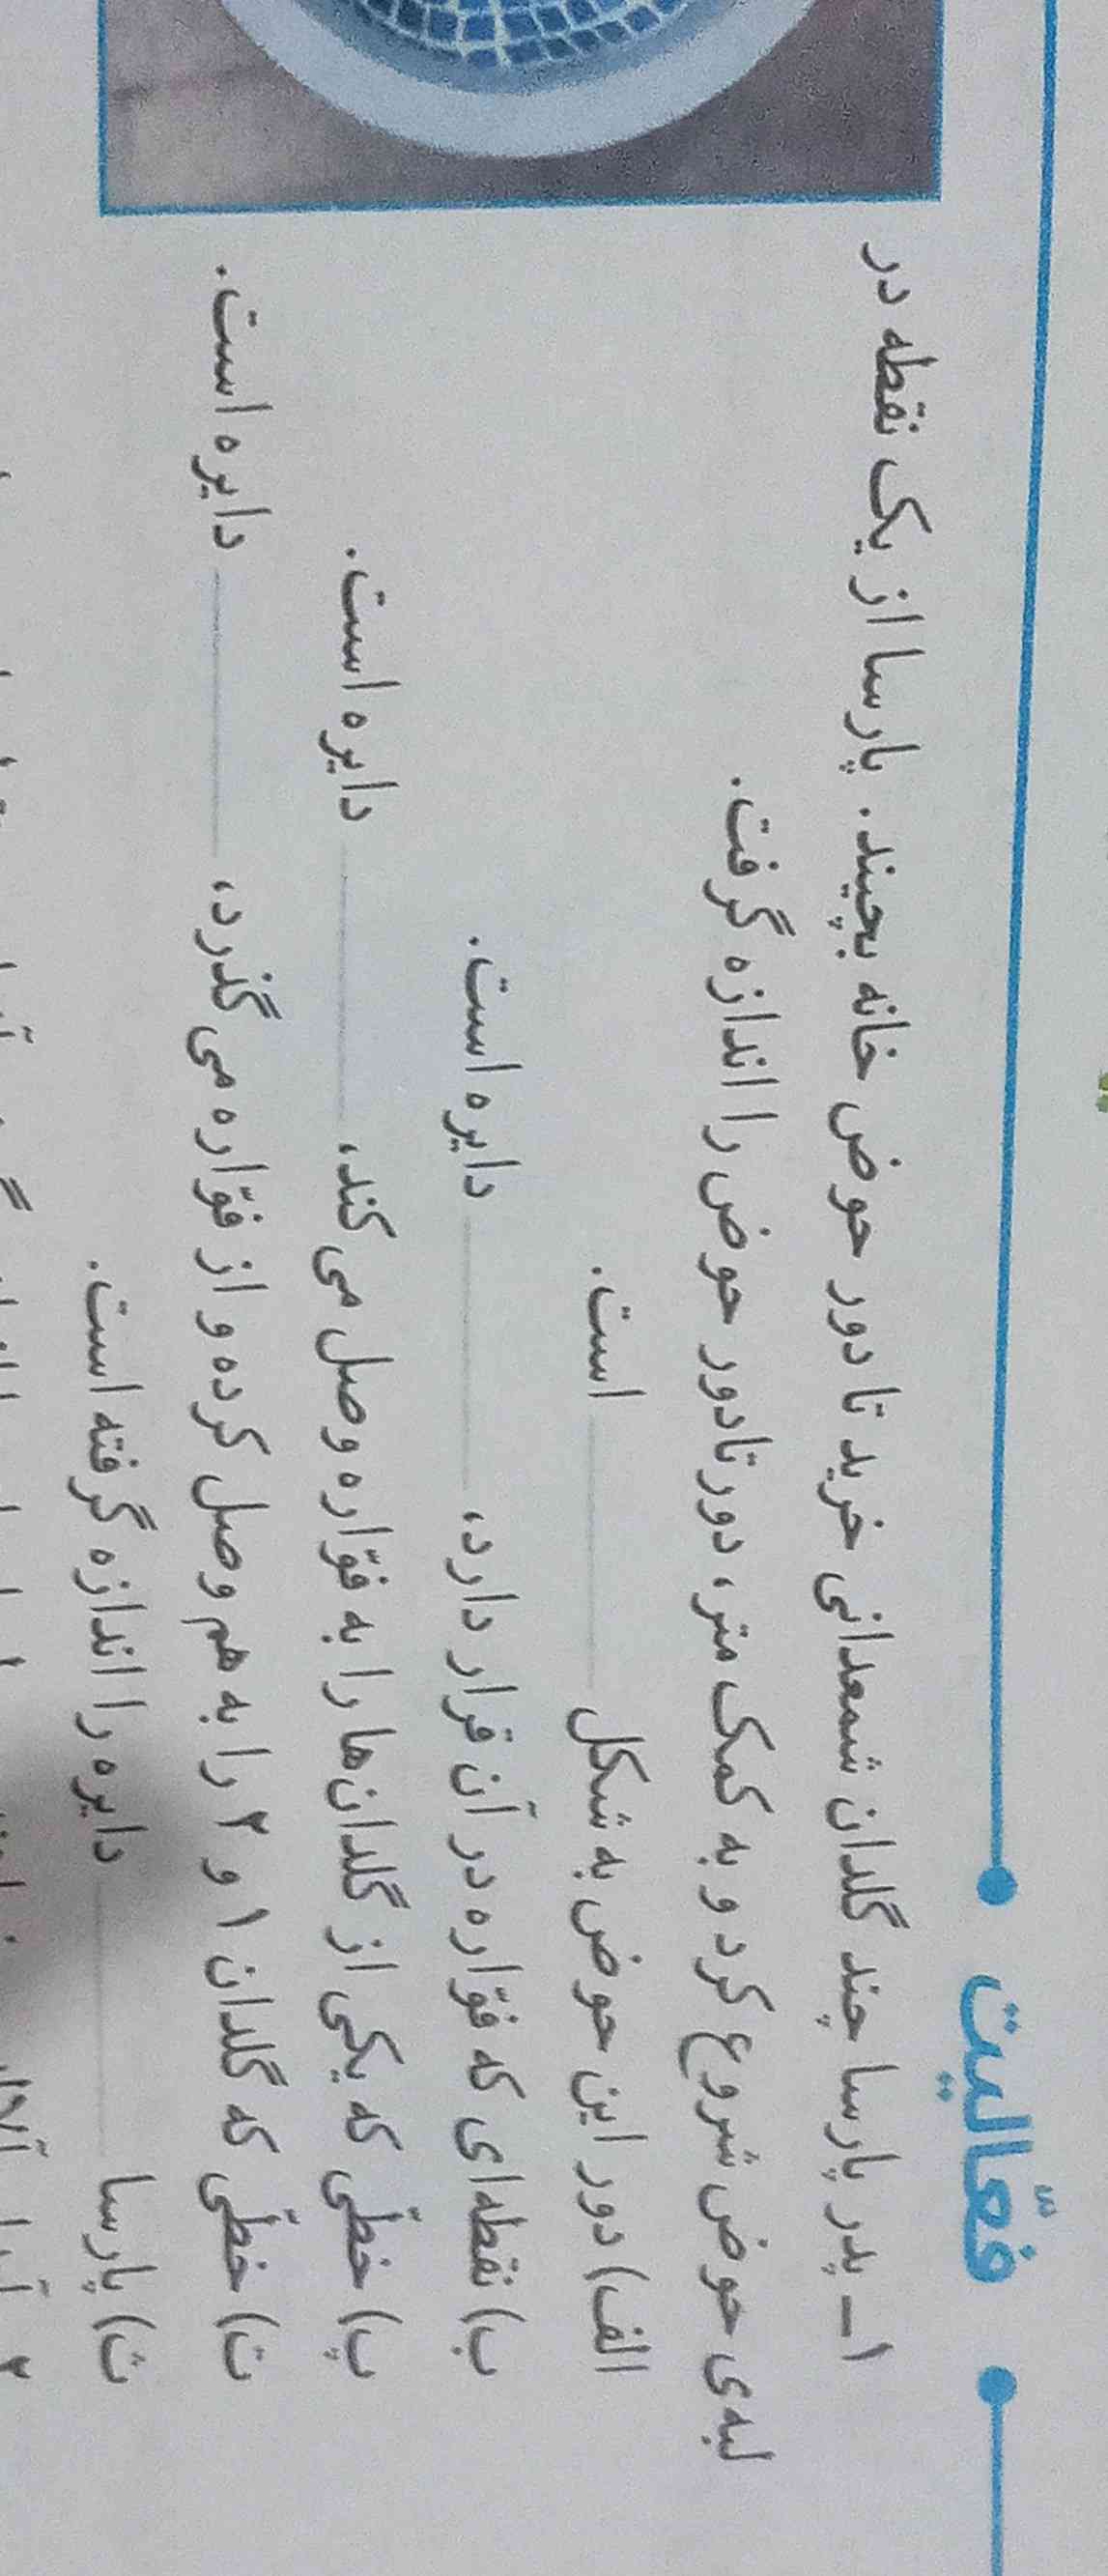 فعّالیت
۱ـ پدر پارسا چند گلدان شمعدانی خرید تا دور حوض خانه بچیند. پارسا از یک نقطه در
لبه‌ی حوض شروع کرد و به کمک متر، دور تا دور حوض را اندازه گرفت.
الف) دور این حوض به شکل ــــــــ است.
ب) نقطه‌ای که فوّاره در آن قرار دارد، ــــــــ دایره است.
پ) خطّی که یکی از گلدان‌ها را به فوّاره وصل می‌کند، ــــــــ دایره است.
ت) خطّی که گلدان ۱ و ۲ را به هم وصل کرده و از فوّاره می‌گذرد، ــــــــ دایره است.
ث) پارسا ــــــــ دایره را اندازه گرفته است.